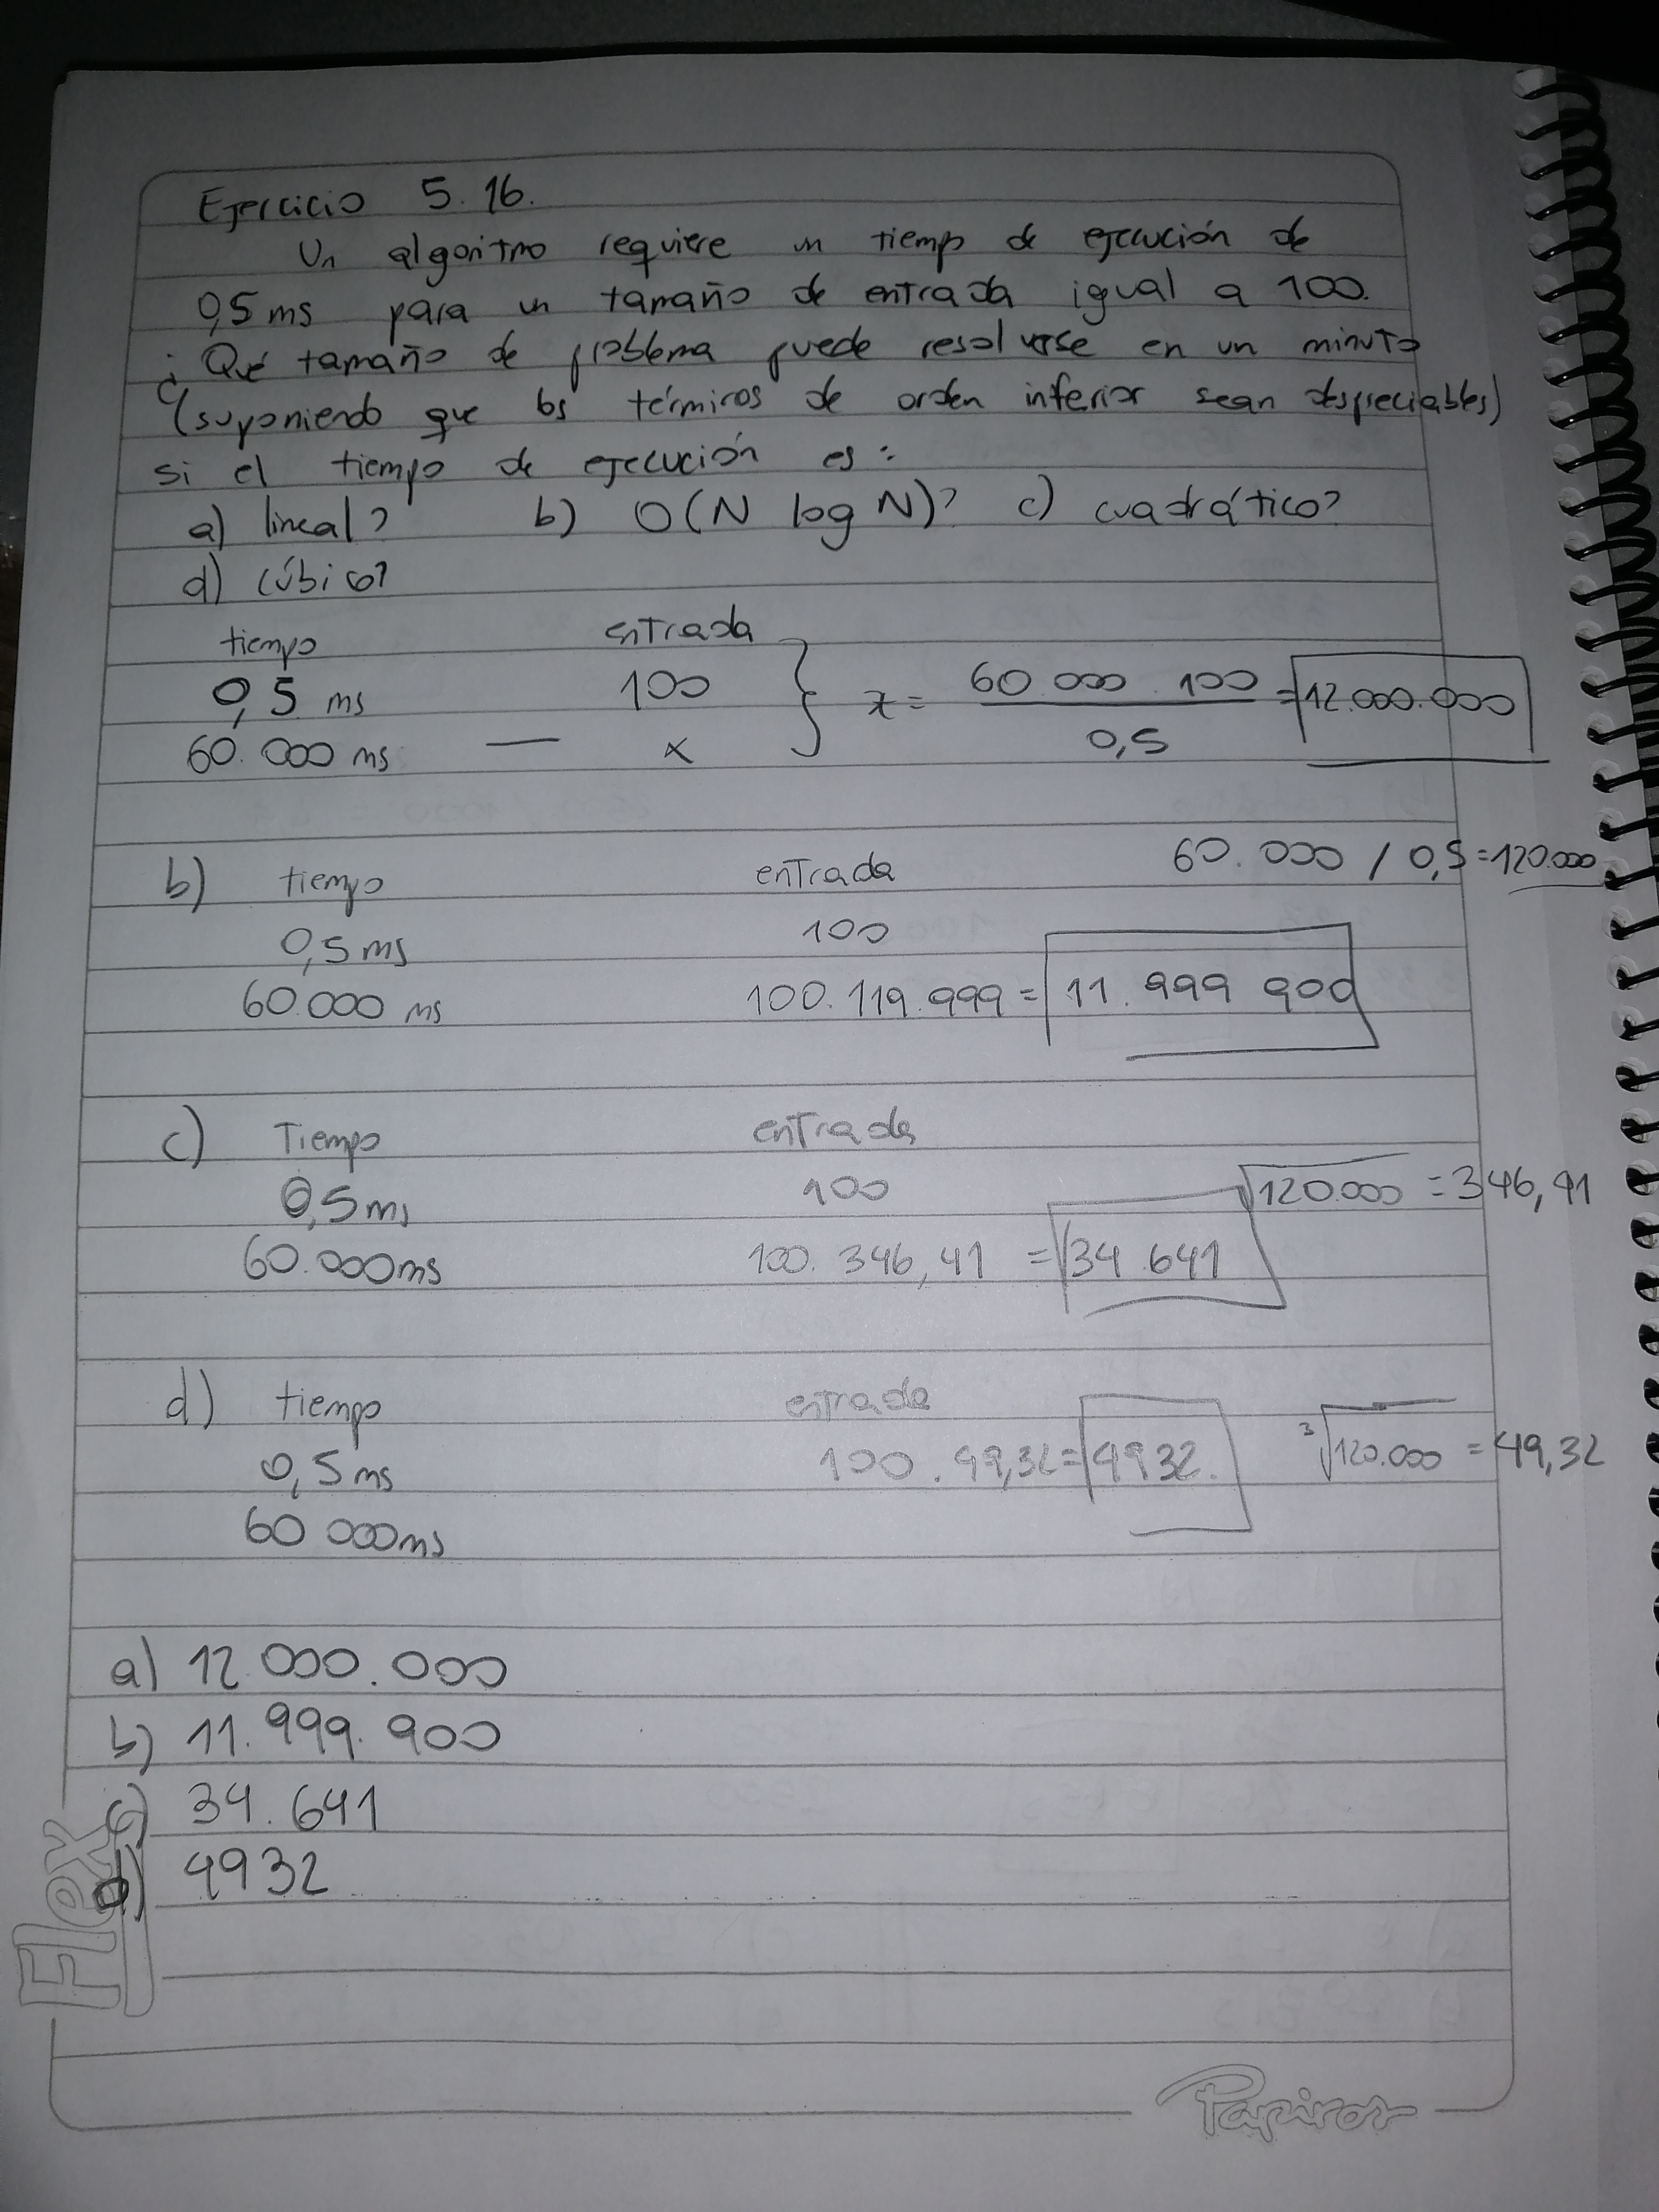 Ejercicio 5.16.
Un algoritmo requiere un tiempo de ejecución de
0,5 ms para un tamaño de entrada igual a 100.
¿Qué tamaño de problema puede resolverse en un minuto
(suponiendo que los términos de orden inferior sean despreciables)
si el tiempo de ejecución es:
a) lineal? b) O(N log N)? c) cuadrático?
d) cúbico?
tiempo entrada
0,5 ms 100 } x = 60.000 . 100 / 0,5 = 12.000.000
60.000 ms — x
60.000 / 0,5 = 120.000
b) tiempo entrada
0,5 ms 100
60.000 ms 100.119.999 = 11.999 900
c) Tiempo entrada
0,5 ms 100 √120.000 = 346,41
60.000 ms 100. 346,41 = 34.641
d) tiempo entrada
0,5 ms 100 . 49,32 = 4932. ³√120.000 = 49,32
60 000 ms
a) 12.000.000
b) 11.999.900
c) 34.641
d) 4932
Flex
Papiros